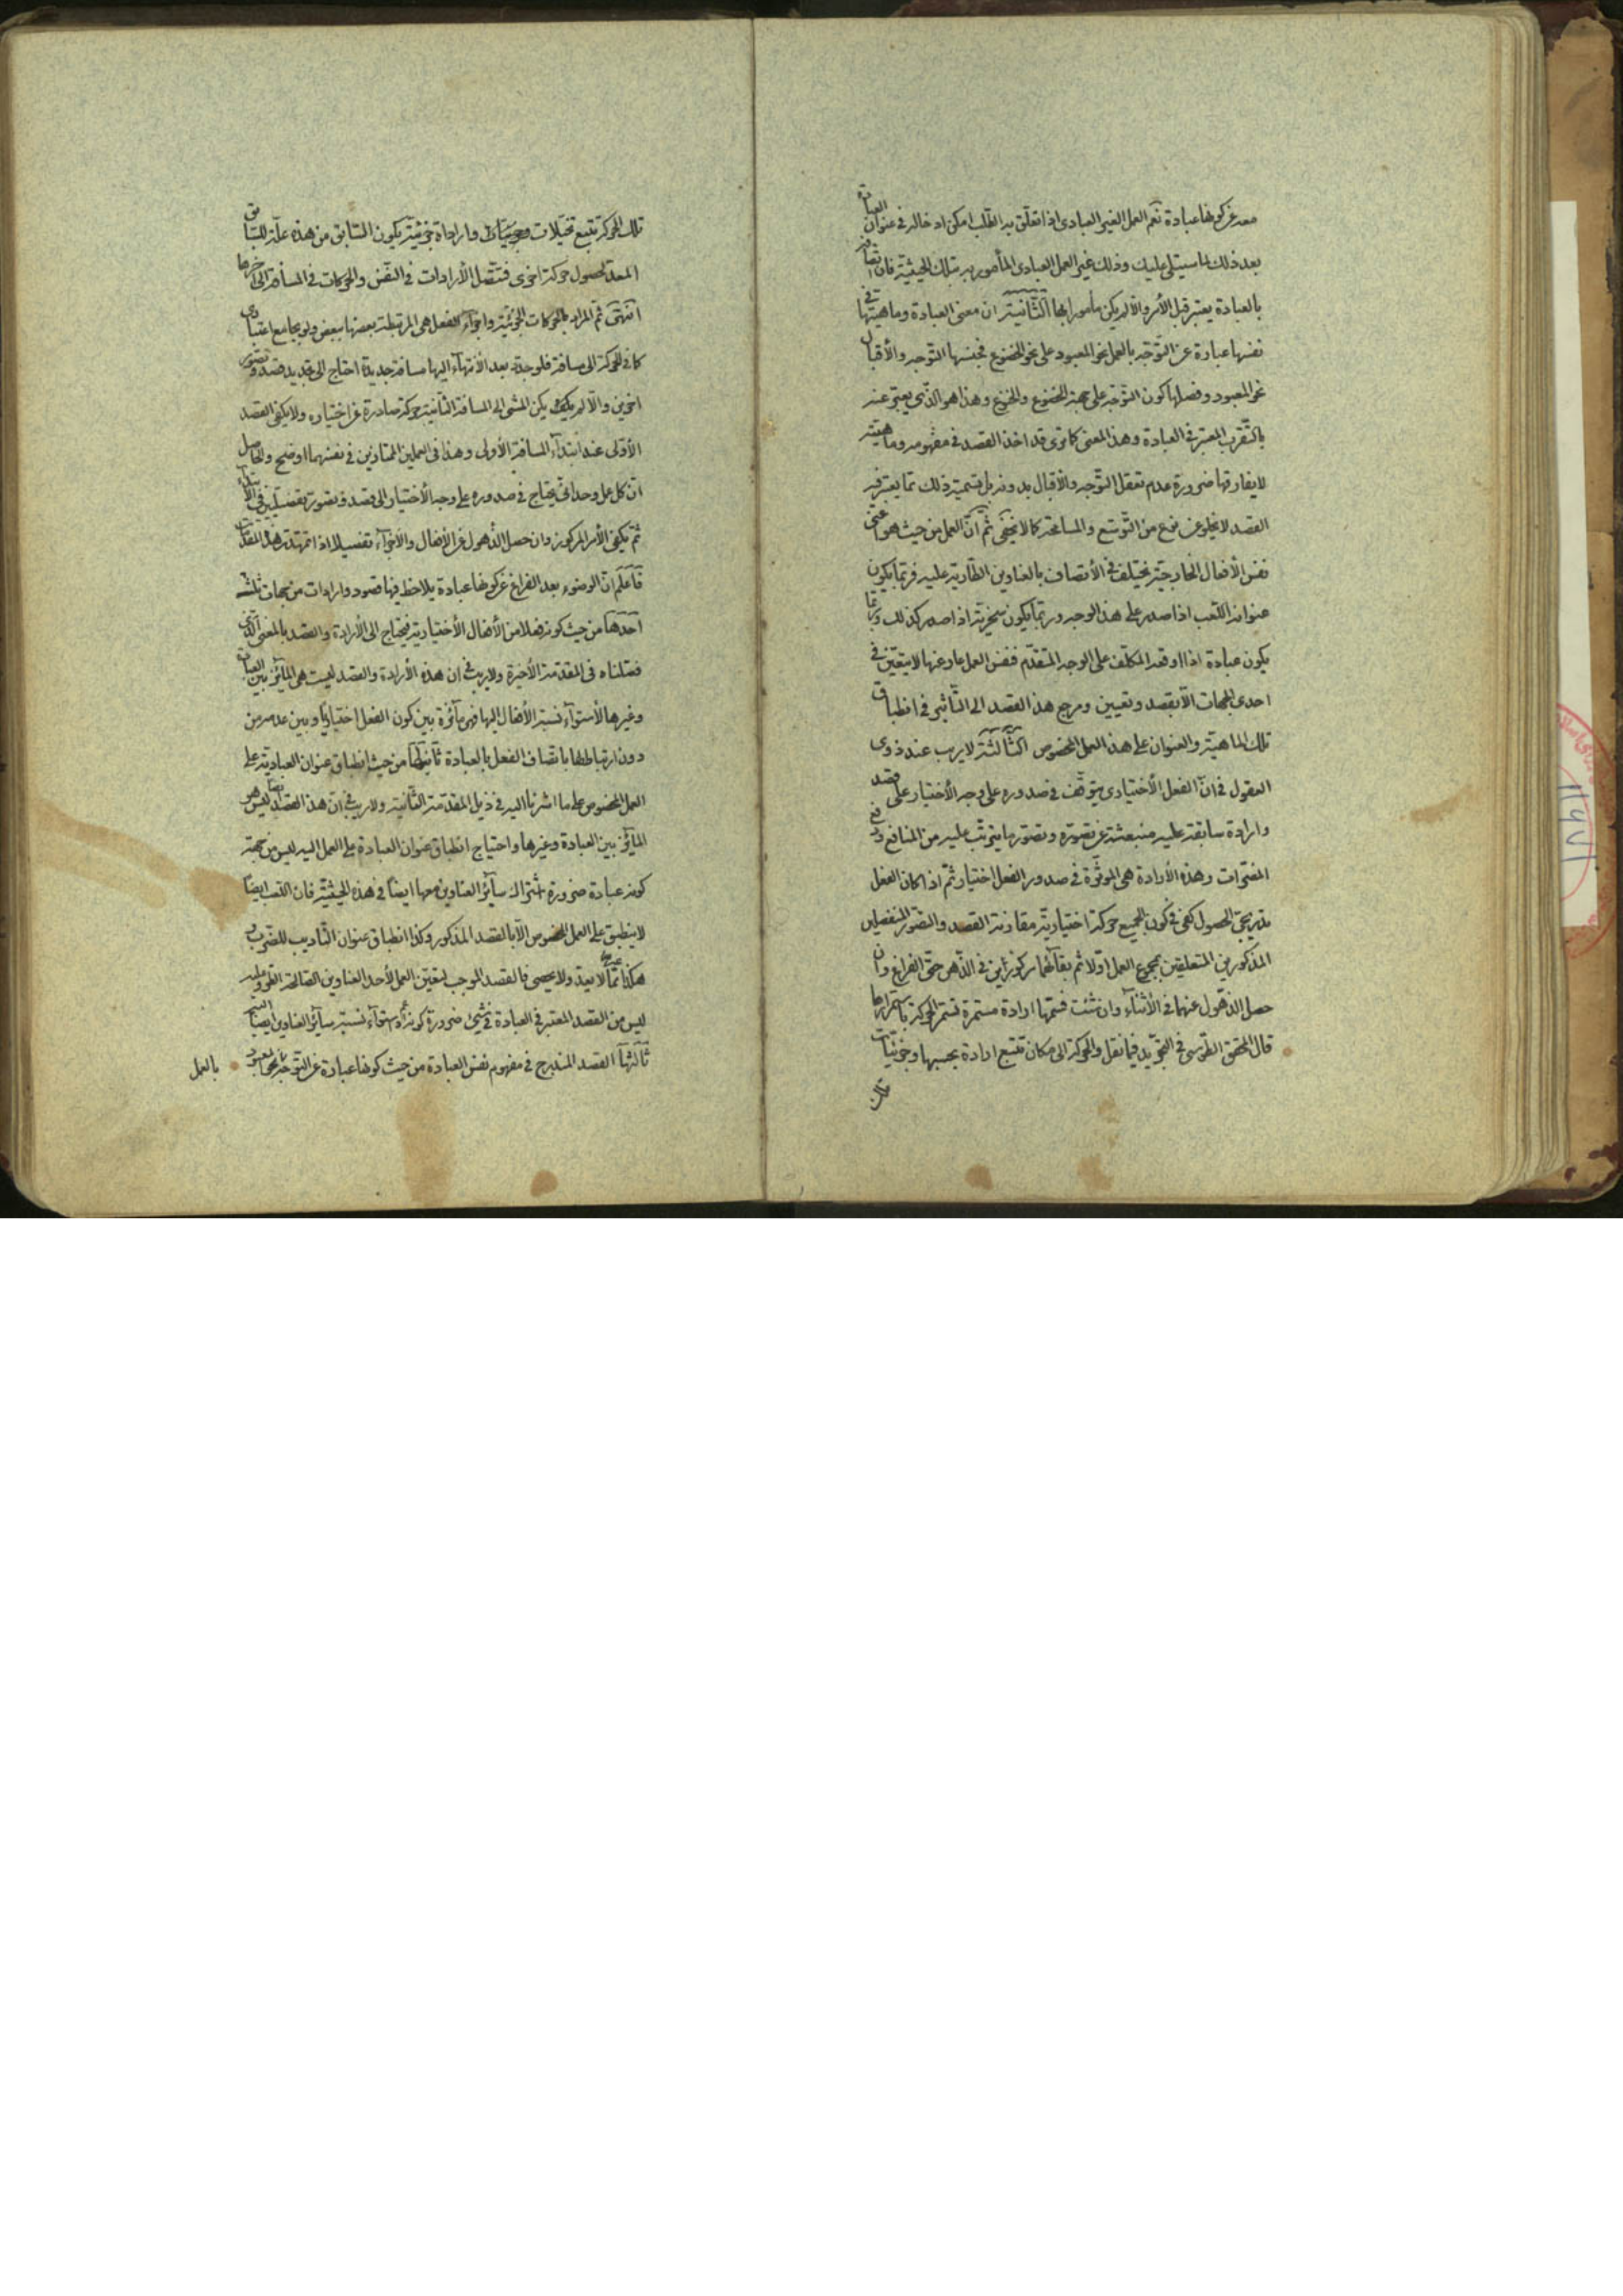 معه عن كونها عبادة نعم العمل الغير العبادى اذا تعلّق به الطّلب امكن ادخاله فى عنوان العبادة
بعد ذلك لما سيتلى عليك وذلك غير العمل العبادى المأمور به بتلك الحيثيّة فان اتصافه
بالعبادة يعتبر قبل الأمر والّا لم يكن مأمورا بها الثّانية ان معنى العبادة وماهيتها فى
نفسها عبارة عن التّوجّه بالعمل نحو المعبود على نحو الخضوع فجنسها التّوجه والأقبال
نحو المعبود وفصلها كون التوّجه على جهة الخضوع والخشوع وهذا هو الذّى يعبّر عنه
بالتّقرب المعتبر فى العبادة وهذا المعنى كما ترى قد اخذ القصد فى مفهومه وماهيّته
لا يفارقها ضرورة عدم تعقل التّوجه والأقبال بدونه بل تسمية ذلك مما يعتبر فيه
القصد لا يخلو عن نوع من التّوسّع والمسامحة كما لا يخفى ثم انّ العمل من حيث هو اعنى
نفس الأفعال الخارجيّة يختلف فى الأتصاف بالعناوين الطّارية عليه فربّما يكون
عنوانه اللّعب اذا صدر على هذا الوجه وربّما يكون سخريّة اذا صدر كذلك وربّما
يكون عبادة اذا اوقعه المكلّف على الوجه المتقدّم فنفس العمل عار عنها لا يتعيّن فى
احدى الجهات الّا بقصد وتعيين ومرجع هذا القصد الى التّأثير فى انطباق
تلك الماهيّة والعنوان على هذا العمل المخصوص الثّالثة لا ريب عند ذوى
العقول فى انّ الفعل الأختيارى يتوقّف فى صدوره على وجه الأختيار على قصد
وارادة سابقة عليه منبعثة عن تصوّره وتصوّر ما يترتّب عليه من المنافع ودفع
المضرّات وهذه الأرادة هى الموثّرة فى صدور الفعل اختيارا ثم اذا كان الفعل
تدريجى الحصول كفى فى كون الجميع حركة اختياريّة مقارنة القصد والتصّور المفصلين
المذكورين المتعلقين بمجموع العمل اوّلا ثم بقائهما مركوزين فى الذّهن حتّى الفراغ وان
حصل الذّهول عنهما فى الأثناء وان شئت فسمّها ارادة مستمرة فتستمر الحركة باستمرارها
قال المحقق الطّوسى فى التجّريد فيما نقل والحركة الى مكان تتبع ارادة بحسبها وجزئيّات
تلك
تلك الحركة تتبع تخيّلات وجزئيّات وارادات جزئيّة يكون السّابق من هذه علّة للسّابق
المعدّ لحصول حركة اخرى فتتّصل الأرادات فى النّفس والحركات فى المسافة الى اخرها
انتهى ثم المراد بالحركات الجزئيّة واجزاء الفعل هى المرتبطة بعضها ببعض ولو بجامع اعتبارى
كما فى الحركة الى مسافة فلو حدث بعد الأنتهاء اليها مسافة جديدة احتاج الى تجديد قصد وتصوّر
اخرين والّا لم يكن المشى الى المسافة الثّانية حركة صادرة عن اختياره ولا يكفى القصد
الأوّلى عند ابتداء المسافة الأولى وهذا فى العملين الممتازين فى نفسهما اوضح والحاصل
انّ كل عمل وحدانىّ يحتاج فى صدوره على وجه الأختيار الى قصد وتصوّر تفصيليّين فى الأبتداء
ثم يكفى الأمر المركوز وان حصل الذّهول عن الأفعال والأجزاء تفصيلا اذا تمهّدت هذه المقدّمات
فاعلم انّ الوضوء بعد الفراغ عن كونها عبادة يلاحظ فيها قصود وارادات من جهات ثلثه
احدها من حيث كونه فعلا من الأفعال الأختيارية فيحتاج الى الأرادة والقصد بالمعنى الّذى
فصّلناه فى المقدّمة الأخيرة ولا ريب فى ان هذه الأرادة والقصد ليست هى المائز بين العبادة
وغيرها لأستواء نسبة الأفعال اليها فهى مائزة بين كون الفعل اختياريّا وبين عدمه من
دون ارتباطها باتصاف الفعل بالعبادة ثانيها من حيث انطباق عنوان العبادية على
العمل المخصوص على ما اشرنا اليه فى ذيل المقدّمة الثّانية ولا ريب فى انّ هذا القصد ايضا ليس هو
المائز بين العبادة وغيرها واحتياج انطباق عنوان العبادة على العمل اليه ليس من جهة
كونه عبادة ضرورة اشتراك سائر العناوين معها ايضا فى هذه الحيثيّة فان اللّعب ايضا
لا ينطبق على العمل المخصوص الّا بالقصد المذكور وكذا انطباق عنوان التّاديب للضّرب و
هكذا ممّا لا يعد ولا يحصى فالقصد الموجب لتعيّن العمل لأحد العناوين الصّالحة الطّروّ عليه
ليس من القصد المعتبر فى العبادة فى شىء ضرورة كونه استواء نسبة سائر العناوين ايضا اليه
ثالثها القصد المندرج فى مفهوم نفس العبادة من حيث كونها عبارة عن التّوجّه نحو المعبود
بالعمل